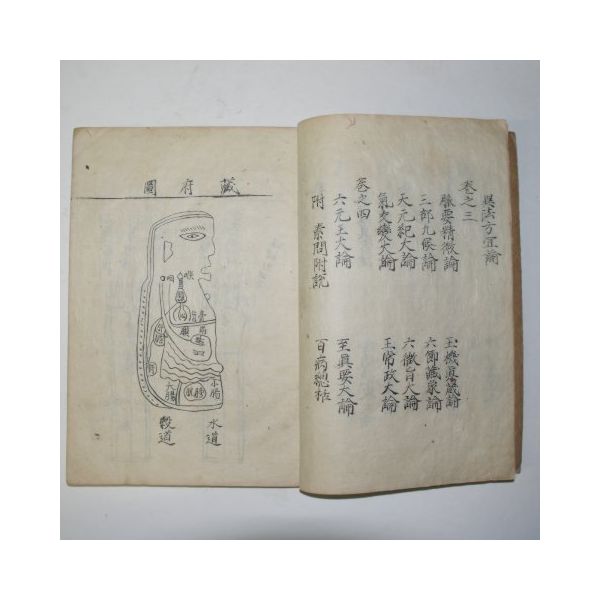 異法方宜論
卷之三
脈要精微論 玉機真藏論
三部九候論 六節藏象論
天元紀大論 六微旨大論
氣交變大論 五常政大論
卷之四
六元正大論 至真要大論
附 素問附説 百病總括
圖府藏
咽
喉
肺
大腸
小腸
膀胱
水道
穀道